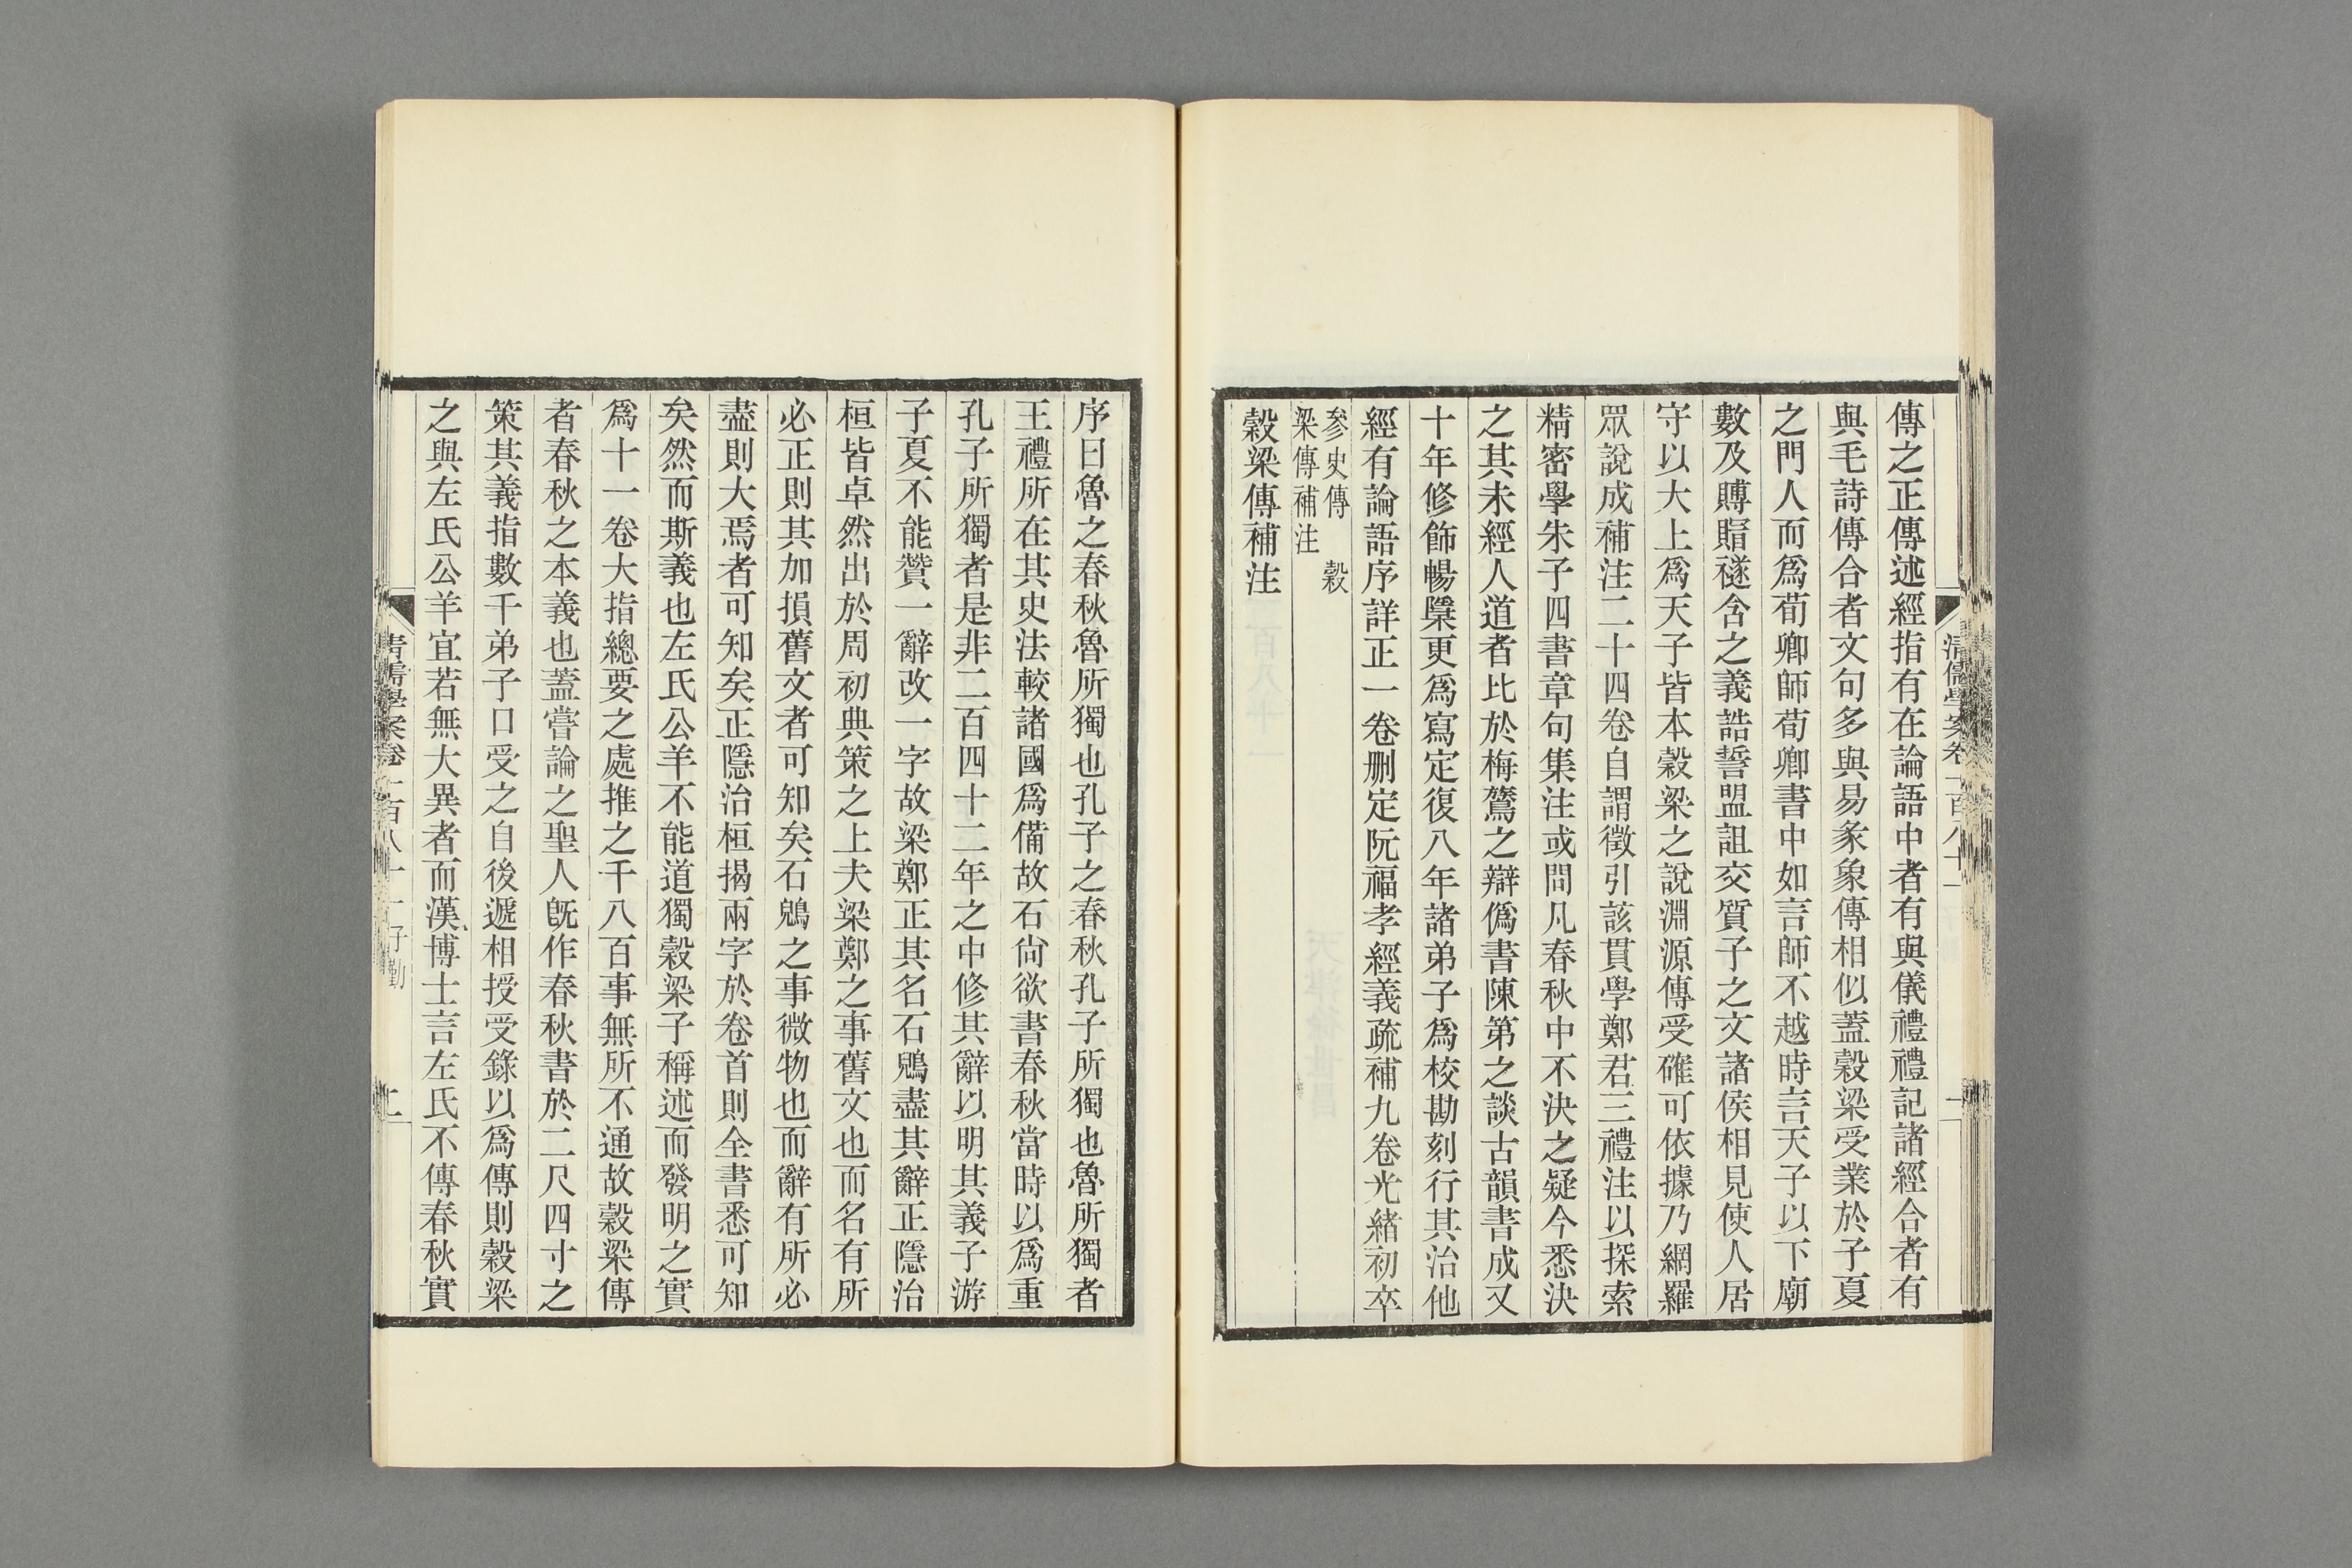 傳之正傳述經指有在論語中者有與儀禮禮記諸經合者有
與毛詩傳合者文句多與易彖象傳相似蓋穀梁受業於子夏
之門人而爲荀卿師荀卿書中如言師不越時言天子以下廟
數及賻賵襚含之義誥誓盟詛交質子之文諸侯相見使人居
守以大上爲天子皆本穀梁之說淵源傳受確可依據乃網羅
眾說成補注二十四卷自謂徵引該貫學鄭君三禮注以探索
精密學朱子四書章句集注或問凡春秋中不決之疑今悉決
之其未經人道者比於梅鷟之辯僞書陳第之談古韻書成又
十年修飾暢隳更爲寫定復八年諸弟子爲校勘刻行其治他
經有論語序詳正一卷刪定阮福孝經義疏補九卷光緒初卒
參史傳 穀
梁傳補注
穀梁傳補注
清儒學案卷一百八十一 一
序曰魯之春秋魯所獨也孔子之春秋孔子所獨也魯所獨者
王禮所在其史法較諸國爲備故石尙欲書春秋當時以爲重
孔子所獨者是非二百四十二年之中修其辭以明其義子游
子夏不能贊一辭改一字故梁鄭正其名石鶂盡其辭正隱治
桓皆卓然出於周初典策之上夫梁鄭之事舊文也而名有所
必正則其加損舊文者可知矣石鶂之事微物也而辭有所必
盡則大焉者可知矣正隱治桓揭兩字於卷首則全書悉可知
矣然而斯義也左氏公羊不能道獨穀梁子稱述而發明之實
爲十一卷大指總要之處推之千八百事無所不通故穀梁傳
者春秋之本義也蓋嘗論之聖人既作春秋書於二尺四寸之
策其義指數千弟子口受之自後遞相授受錄以爲傳則穀梁
之與左氏公羊宜若無大異者而漢博士言左氏不傳春秋實
清儒學案卷一百八十一 子勤 二